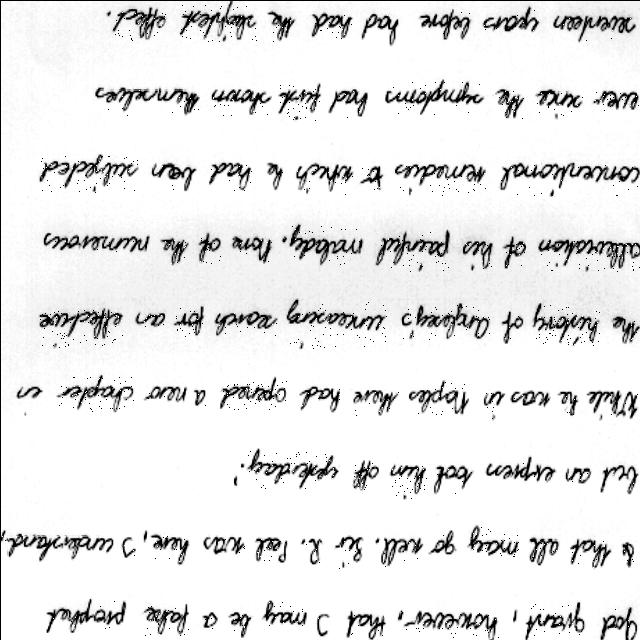 God grant, however, that I may be a false prophet
& that all may go well. Sir. R. Peel was here, I understand,
but an express took him off yesterday.'
While he was in Naples there had opened a new chapter in
the history of Anglesey's unceasing search for an effective
alleviation of his painful malady. None of the numerous
conventional remedies to which he had been subjected
ever since the symptoms had first shown themselves
seventeen years before had had the slightest effect.